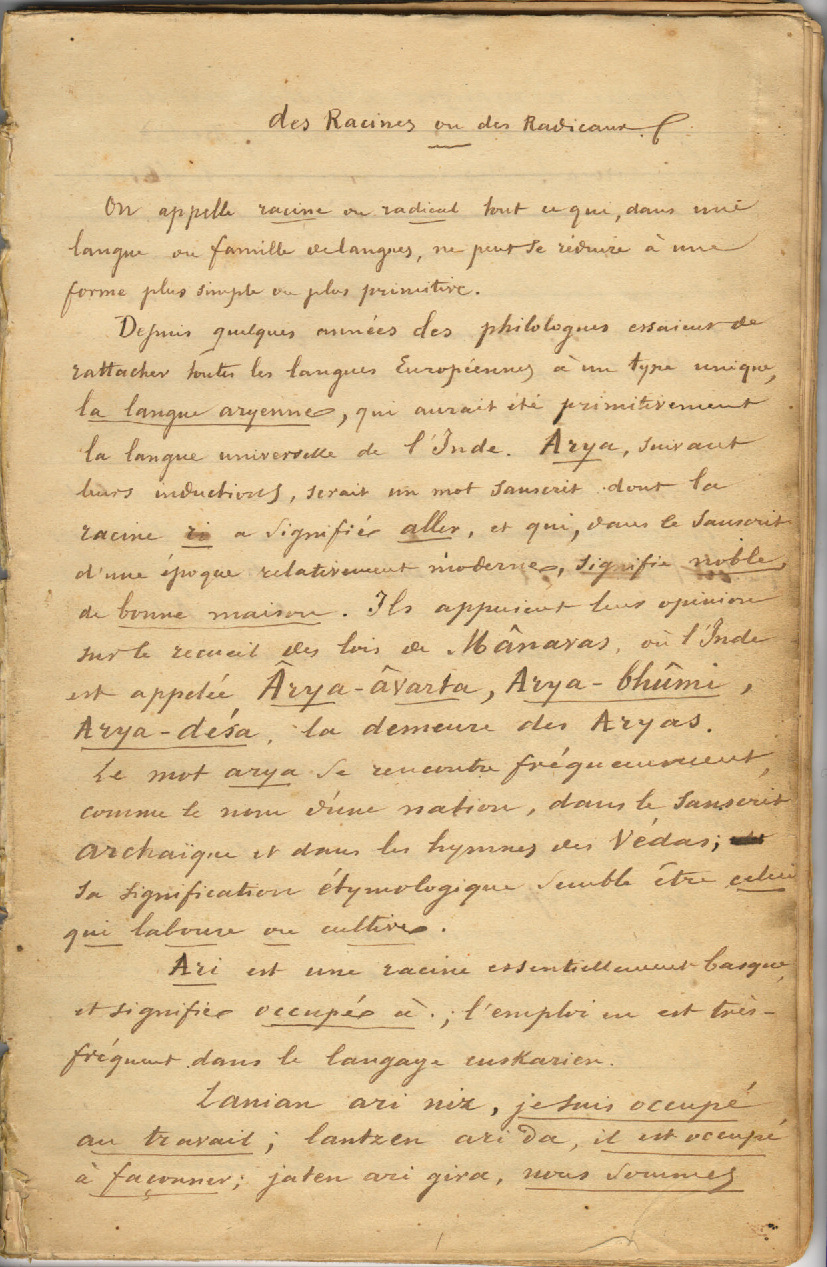 des Racines ou des Radicaux.
On appelle racine ou radical tout ce qui, dans une
langue ou famille de langues, ne peut se réduire à une
forme plus simple ou plus primitive.
Depuis quelques années des philologues essaient de
rattacher toutes les langues Européennes à un type unique,
la langue aryenne, qui aurait été primitivement
la langue universelle de l'Inde. Arya, suivant
leurs inductions, serait un mot sanscrit dont la
racine ri a signifié aller, et qui, dans le sanscrit
d'une époque relativement moderne, signifie noble,
de bonne maison. Ils appuient leur opinion
sur le recueil des lois de Mânavas, où l'Inde
est appelée Ârya-âvarta, Arya-bhûmi,
Arya-désa, la demeure des Aryas.
Le mot arya se rencontre fréquemment,
comme le nom d'une nation, dans le sanscrit
archaïque et dans les hymnes des Védas;
sa signification étymologique semble être celui
qui laboure ou cultive.
Ari est une racine essentiellement basque,
et signifie occupé à; l'emploi en est très-
fréquent dans le langage euskarien.
Lanian ari niz, je suis occupé
au travail; lantzen ari da, il est occupé
à façonner; jaten ari gira, nous sommes